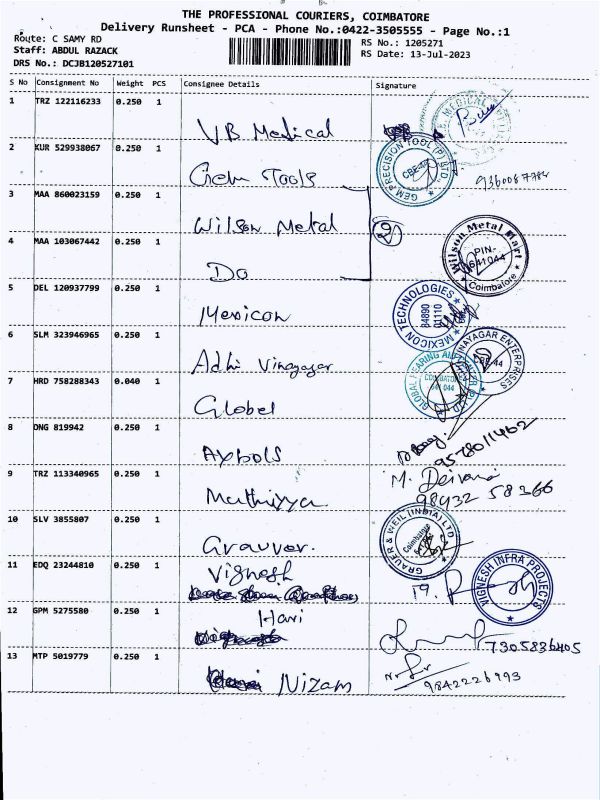 THE PROFESSIONAL COURIERS, COIMBATORE
Delivery Runsheet - PCA - Phone No.:0422-3505555 - Page No.:1
Route: C SAMY RD
RS No.: 1205271
Staff: ABDUL RAZACK
RS Date: 13-Jul-2023
DRS No.: DCJB120527101
S No Consignment No Weight PCS Consignee Details Signature
1 TRZ 122116233 0.250 1 VB Medical
2 KUR 529938067 0.250 1 Gem Tools GEM PRECISION TOOL (P) LTD. CBE-44 9360087784
3 MAA 860023159 0.250 1 Wilson Metal (2)
4 MAA 103067442 0.250 1 Do Wilson Metal Mart PIN-641044 Coimbatore
5 DEL 120937799 0.250 1 Mexicon MEXICON TECHNOLOGIES
6 SLM 323946965 0.250 1 Adhi Vinayagar ENTERPRISES CBE-44
7 HRD 758288343 0.040 1 Globel GLOBAL HEARING
8 DNG 819942 0.250 1 Axbols 9578011462
9 TRZ 113340965 0.250 1 Muthiyya M. Deivana 98432 58366
10 SLV 3855807 0.250 1 Grauver. GRAUER & WEIL (INDIA) LTD Coimbatore
11 EDQ 23244810 0.250 1 Vignesh VIGNESH INFRA PROJECTS
12 GPM 5275580 0.250 1 Hari 7305836405
13 MTP 5019779 0.250 1 Nizam 9842226993